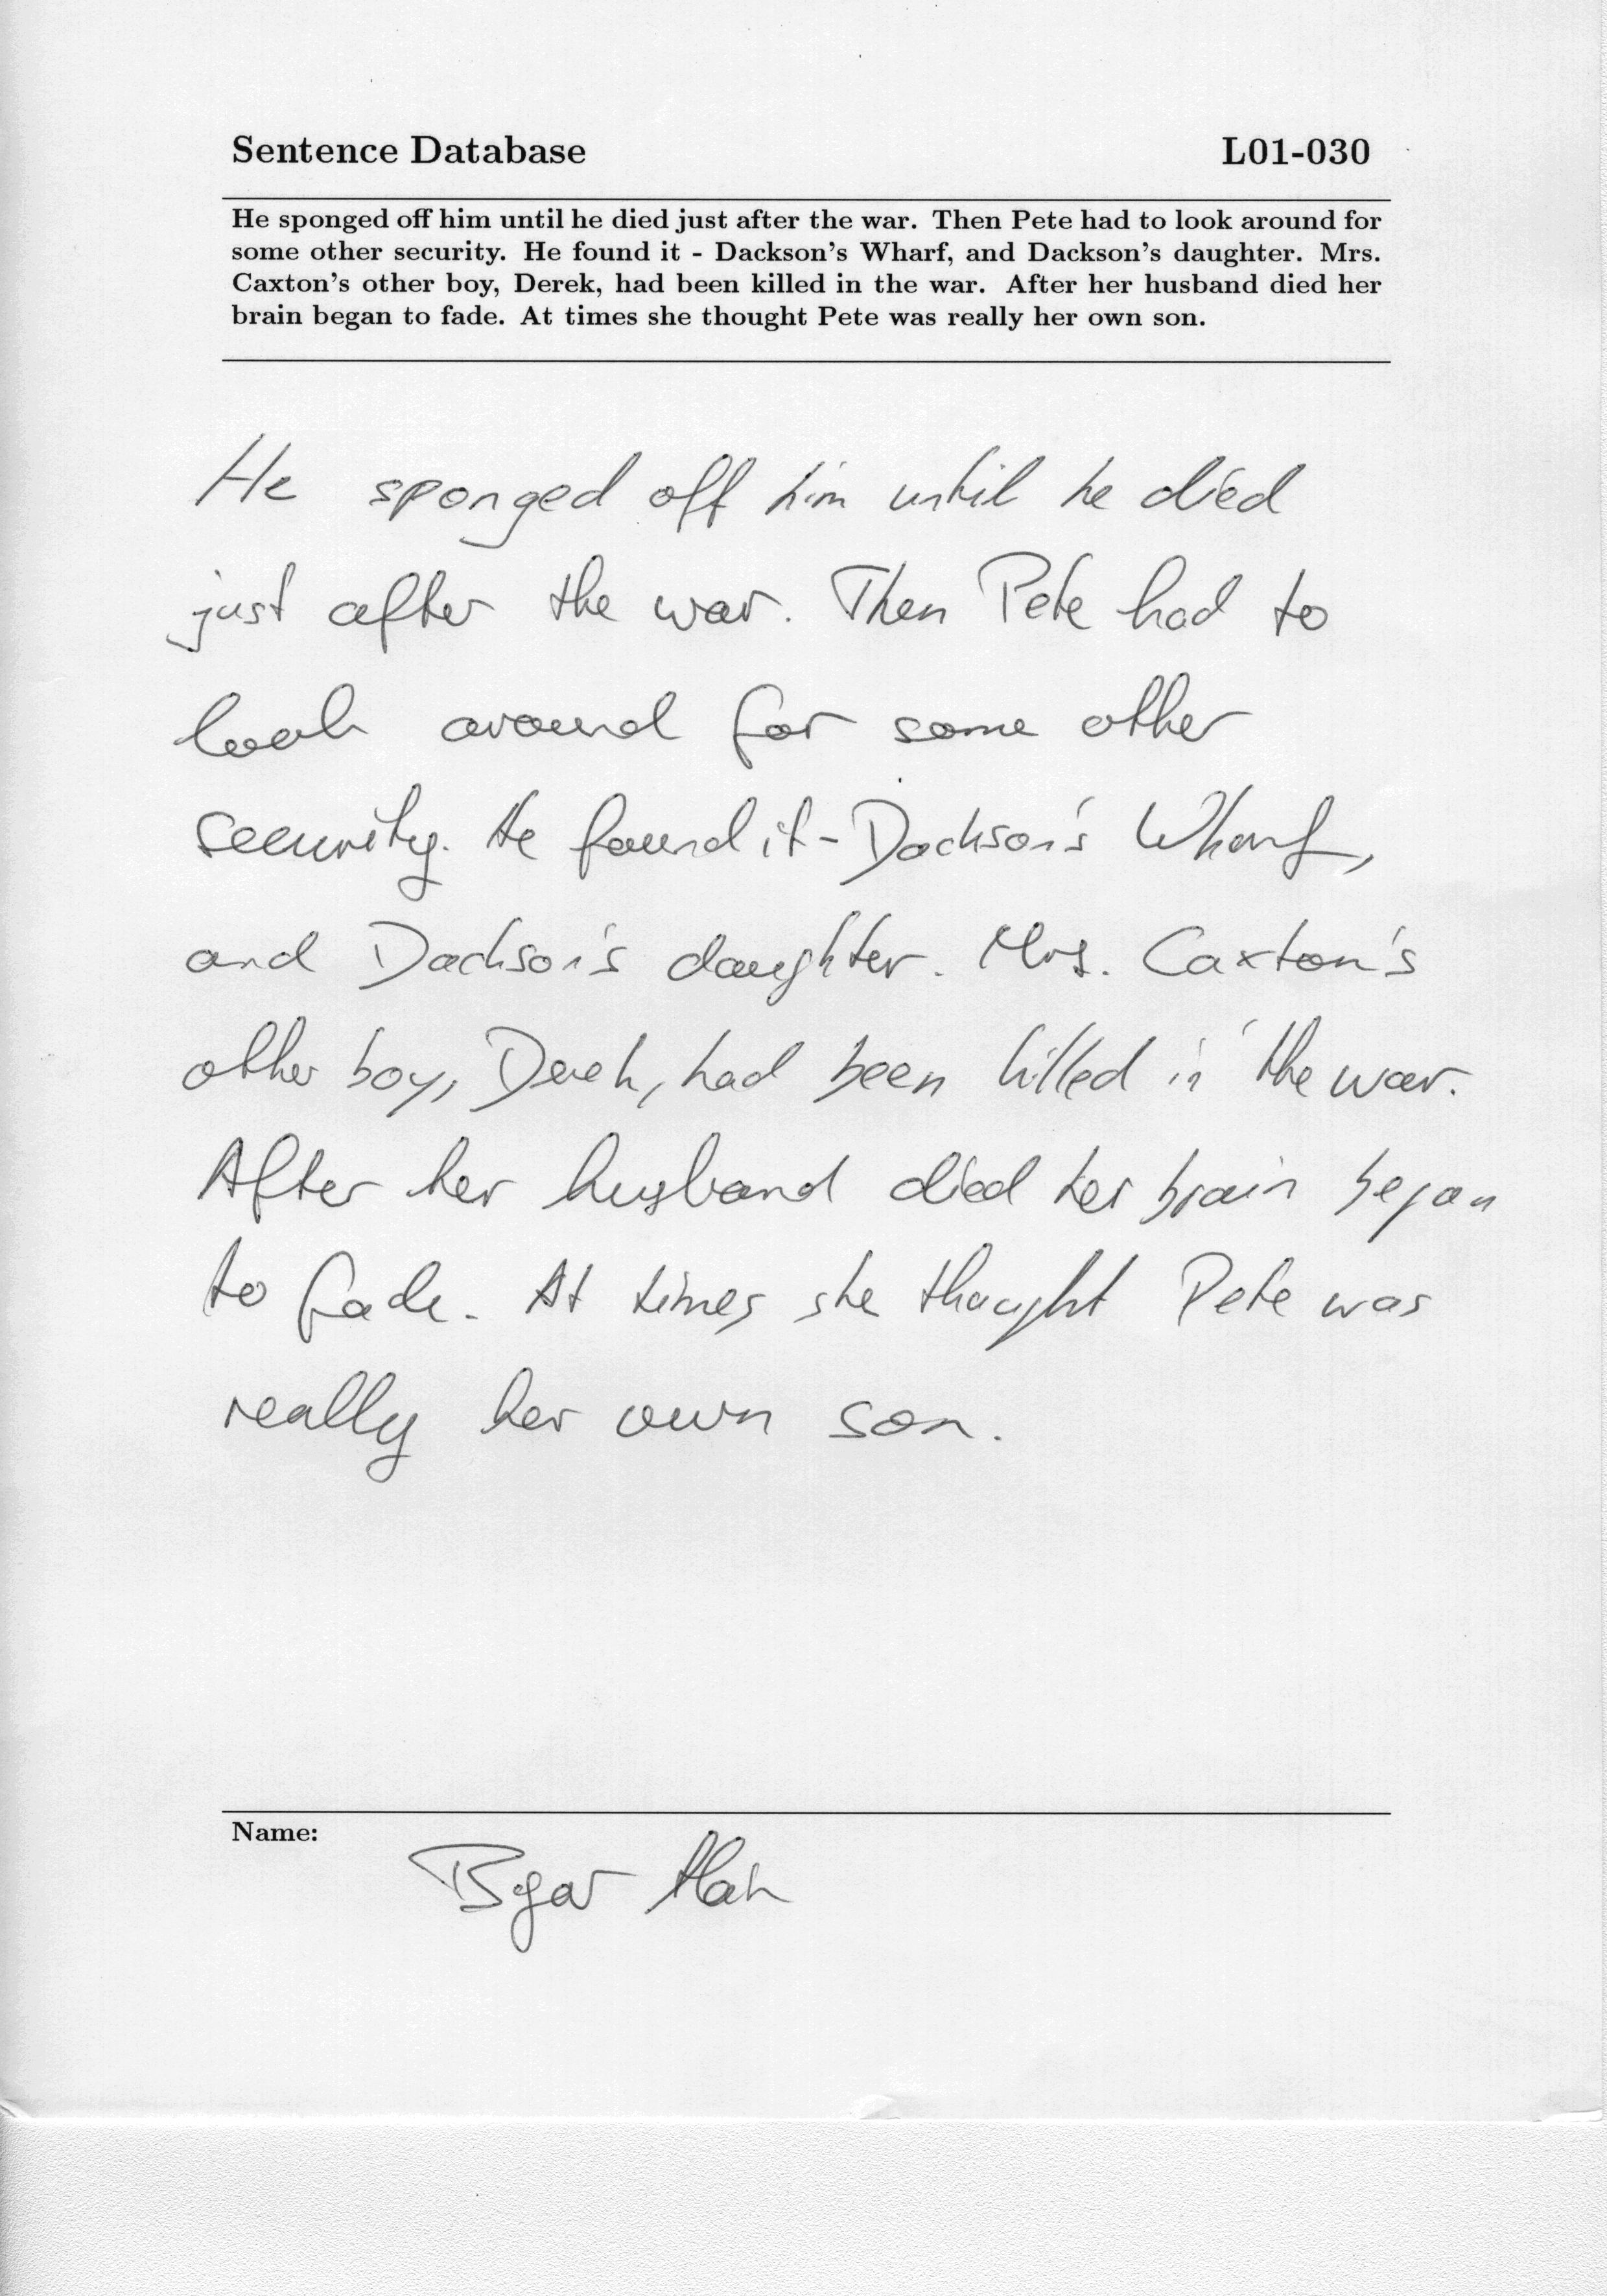 Sentence Database L01-030
He sponged off him until he died just after the war. Then Pete had to look around for
some other security. He found it - Dackson's Wharf, and Dackson's daughter. Mrs.
Caxton's other boy, Derek, had been killed in the war. After her husband died her
brain began to fade. At times she thought Pete was really her own son.
He sponged off him until he died
just after the war. Then Pete had to
look around for some other
security. He found it - Dackson's Wharf,
and Dackson's daughter. Mrs. Caxton's
other boy, Derek, had been killed in the war.
After her husband died her brain began
to fade. At times she thought Pete was
really her own son.
Name: